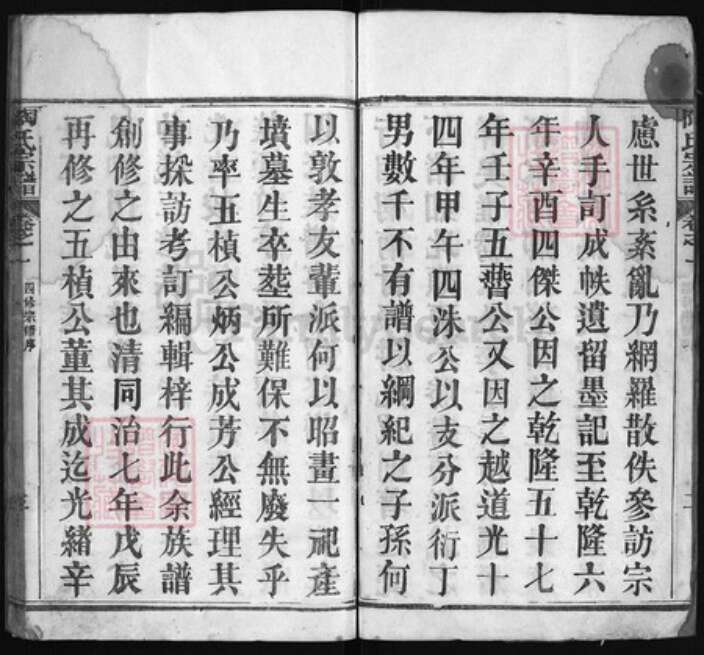 慮世系紊亂乃網羅散佚參訪宗
人手訂成帙遺留墨記至乾隆六
年辛酉四傑公因之乾隆五十七
年壬子五薔公又因之越道光十
四年甲午四洙公以支分派衍丁
男數千不有譜以綱紀之子孫何
以敦孝友輩派何以昭晝一祀產
墳墓生卒塟所難保不無廢失乎
乃率五楨公炳公成芳公經理其
事採訪考訂編輯梓行此余族譜
創修之由來也清同治七年戊辰
再修之五楨公董其成迄光緒辛
陶氏宗譜
卷之一
四修宗譜序